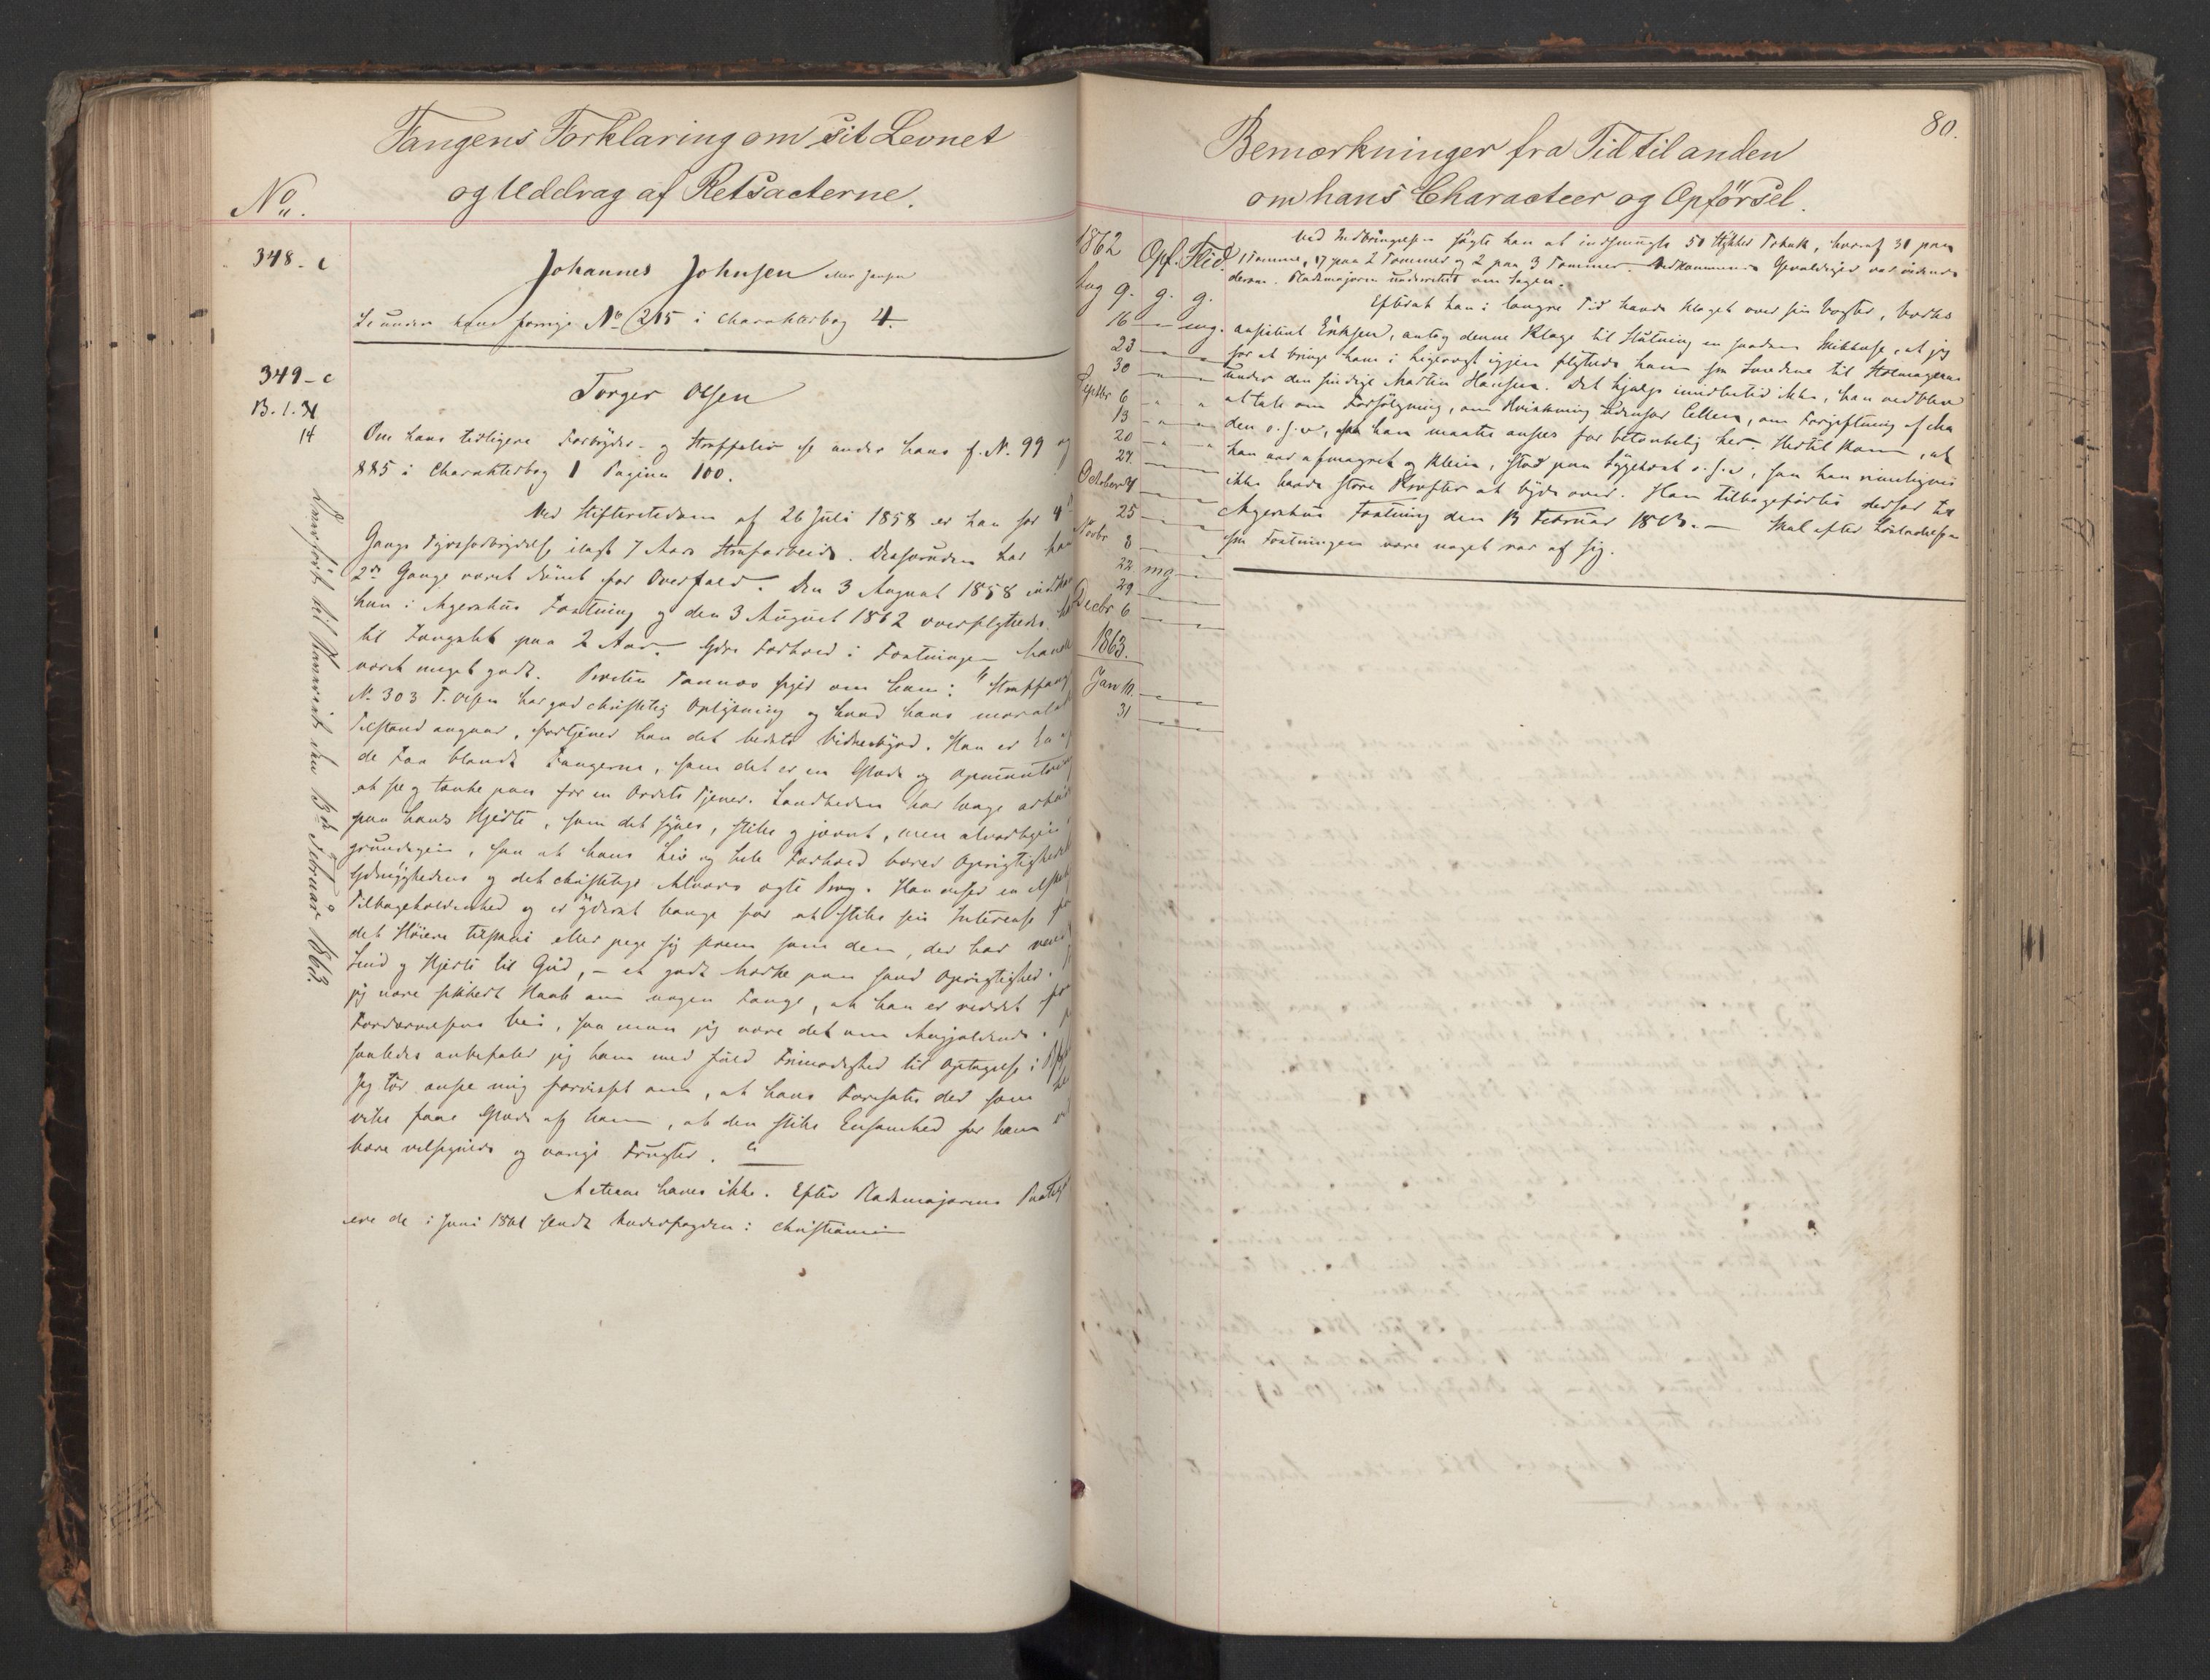 Fangens Forklaring om sit Levnet
og Uddrag af Retsacterne.
No.
348-c
Johannes Johnsen eller Jensen
Se under hans forrige No 215 i Charakterbog 4.
349-c
B. 1. 31
14
Torger Olsen
Om hans tidligere Forbryder- og Straffeliv se under hans f. N. 99 og
885 i Charakterbog 1 Pagina 100.
Ved Stiftsretsdom af 26 Juli 1858 er han for 4de
Gangs Tyvsforbrydelse ilagt 7 Aars Strafarbeide. Desforuden har han
2de Gange været dømt for Overfald. Den 3 August 1858 indkom
han i Agershus Fæstning og den 3 August 1862 overflyttedes
til Fangslet paa 2 Aar. Hans Forhold i Fæstningen havde
været meget godt. Præsten siger om ham: "Straffange
No 303 T. Olsen har god christelig Oplysning og hvad hans moralske
Tilstand angaar, fortjener han det bedste Vidnesbyrd. Han er En af
de Faa blandt Fangerne, som det er en Glæde og Opmuntring
at se og tænke paa for en Ordets Tjener. Sandheden har længe arbeidet
paa hans Hjerte, som det synes, stille og jævnt, men alvorligen,
grundigen, saa at hans Liv og hele Forhold bærer Oprigtighedens,
Ydmyghedens og det christelige Alvors ægte Præg. Han
Tilbageholdenhed og er yderst bange for at stille sin Interesse for
det Høiere tilskue eller sige sig frem som den, der har vendt
Sind og Hjerte til Gud, - et godt Mærke paa sand Oprigtighed.
jeg nære sikkert Haab om nogen Fange, at han er reddet fra
Fordærvelsens Vei, saa maa jeg nære det om Angjældende.
saaledes anbefaler jeg ham med fuld Frimodighed til Optagelse i
Jeg tør anse mig forvisset om, at hans Foresatte der som
ville faae Glæde af ham, at den stille Ensomhed for ham
bære velsignede og varige Frugter."
Acterne haves ikke. Efter Pladsmajorens Paategn
ere de i Juni 1861 sendt Underfogden i Christiania
Overført til den 13de Februar 1863.
80.
Bemærkninger fra Tid til anden
om hans Characteer og Opførsel.
1862 Opf. Flid.
Aug 9. g. g.
16 - mg.
23
30
Septbr 6
13
20
27
October 4
25
Novbr 8
22 mg
29
Decbr 6
1863.
Jan 10.
31
Ved Indbringelsen søgte han at indsmugle 50 Stykker Tobak, hvoraf 31 paa
1 Tomme, 17 paa 2 Tommer og 2 paa 3 Tommer. Vedkommende Gevaldiger var vidende
derom. Pladsmajoren underrettet om Sagen.
Efterat han i længre Tid havde klaget over sin Vogter,
Eriksen, antog denne Klage til Slutning en saadan Skikkelse, at jeg
for at bringe ham i Ligevægt igjen flyttede ham fra
under den sindige Martin Hansen. Det hjalp imidlertid ikke, han vedblev
at tale om Forfølgning, om Hvisken udenfor Cellen, om Forgiftning af Ma
den o. s. v., saa han maatte anses for betænkelig her. Hertil kom, at
han var afmagret og kleen, stod paa Sygekost o. s. v., saa han rimeligvis
ikke havde store Kræfter at byde over. Han tilbageførtes derfor til
Agershus Fæstning den 13 Februar 1863. - Skal efter
fra Fæstningen være noget rar af sig.